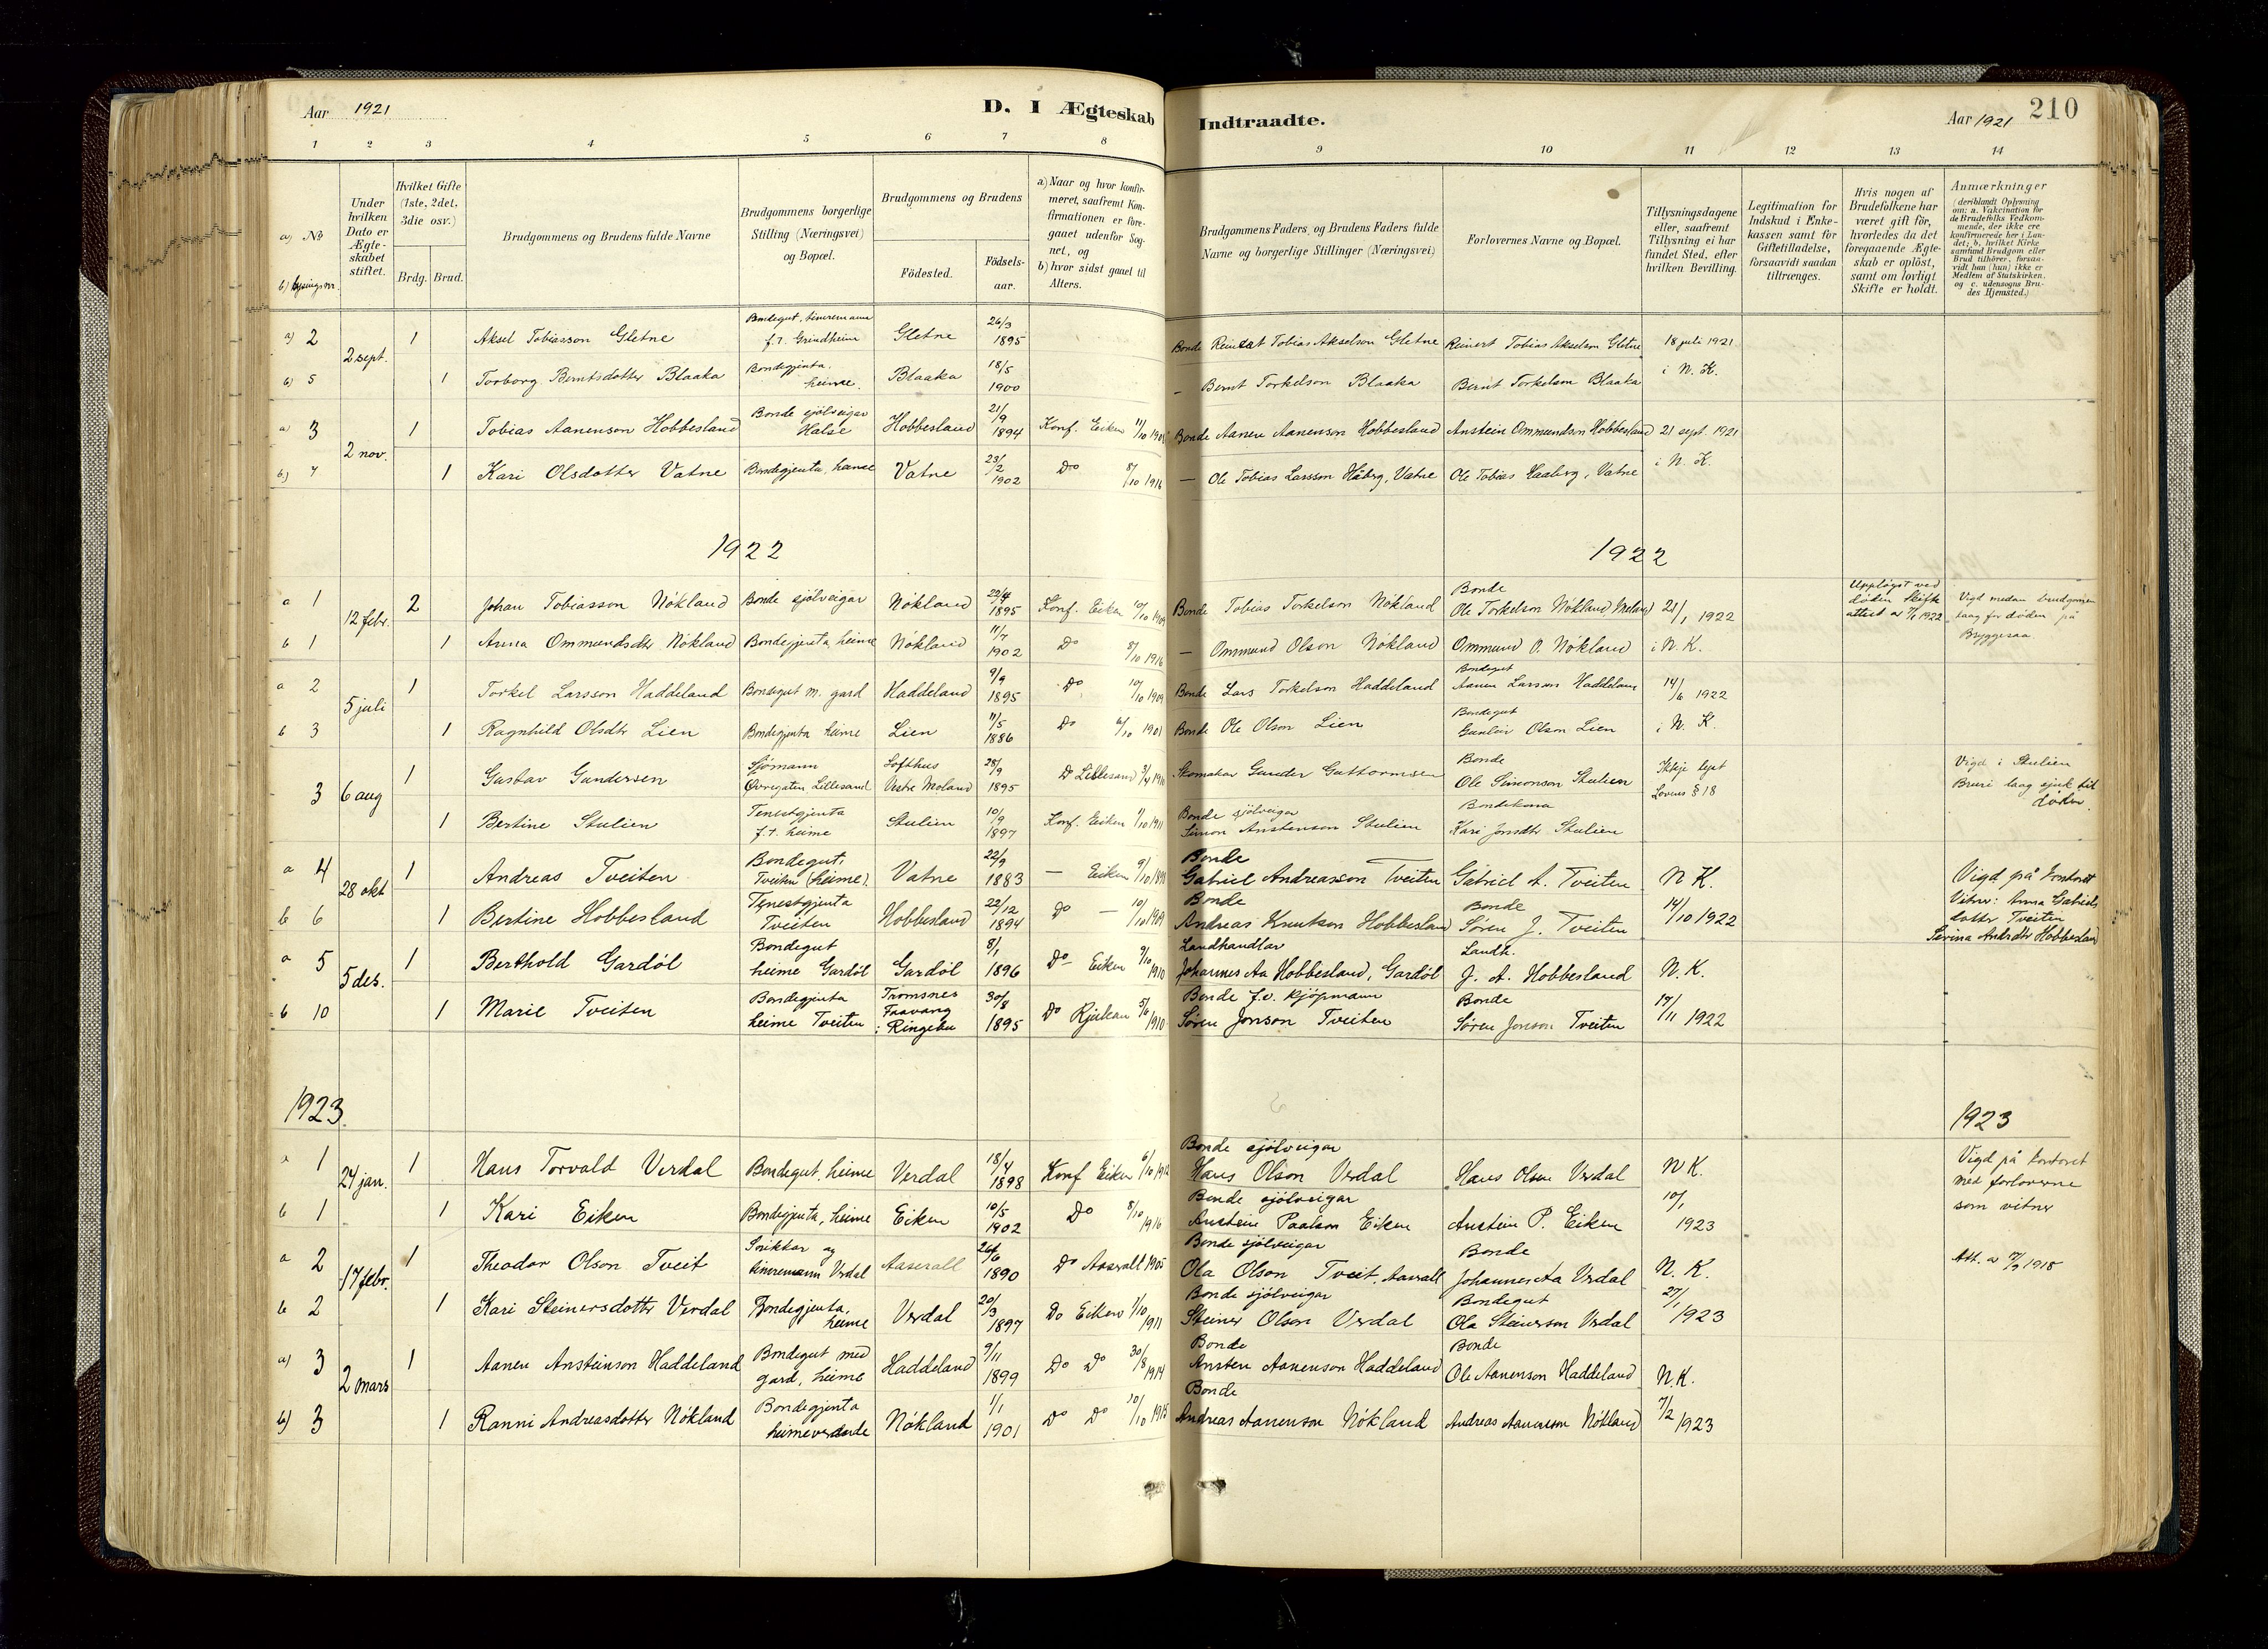 Aar 1921
D. I Ægteskab Indtraadte.
Aar 1921 210
1 2 3 4 5 6 7 8 9 10 11 12 13 14
a) No b) lysingsnr.
Under hvilken Dato er Ægteskabet stiftet.
Hvilket Gifte (1ste, 2det, 3die osv.)
Brdg. Brud.
Brudgommens og Brudens fulde Navne
Brudgommens borgerlige Stilling (Næringsvei) og Bopæl.
Brudgommens og Brudens
Födested. Födsels-aar.
a) Naar og hvor konfirmeret, saafremt Konfirmationen er foregaaet udenfor Sognet, og b) hvor sidst gaaet til Alters.
Brudgommens Faders og Brudens Faders fulde Navne og borgerlige Stillinger (Næringsvei)
Forlovernes Navne og Bopæl.
Tillysningsdagene eller, saafremt Tillysning ei har fundet Sted, efter hvilken Bevilling.
Legitimation for Indskud i Enkekassen samt for Giftetilladelse, forsaavidt saadan tiltrænges.
Hvis nogen af Brudefolkene har været gift för, hvorledes da det foregaaende Ægteskab er oplöst, samt om lovligt Skifte er holdt.
Anmærkninger (deriblandt Oplysning om: a. Vakcination for de Brudefolks Vedkommende, der ikke ere konfirmerede her i Landet; b. hvilket Kirkesamfund Brudgom eller Brud tilhörer, forsaavidt han (hun) ikke er Medlem af Statskirken, og c. udensogns Brudes Hjemsted.)
a) 2 2 sept. 1 Aksel Tobiasson Gletne Bondegut, timremann f.t. Grindheim Gletne 26/3 1895 Bonde Reinert Tobias Akselson Gletne Reinert Tobias Akselson Gletne 18 juli 1921
b) 5 1 Torborg Berntsdotter Blaaka Bondegjenta, heime. Blaaka 18/5 1900 – Bernt Torkelson Blaaka Bernt Torkelson Blaaka i N. K.
a) 3 2 nov. 1 Tobias Aanenson Hobbesland Bonde sjölveigar Halse Hobbesland 21/9 1894 Konf. Eiken 11/10 Bonde Aanen Aanenson Hobbesland Anstein Ommundson Hobbesland 21 sept. 1921
b) 7 1 Kari Olsdotter Vatne Bondegjenta, heime Vatne 23/2 1902 Do 8/10 1916 – Ole Tobias Larsson Håberg, Vatne Ole Tobias Haaberg, Vatne i N. K.
1922 1922
a 1 12 febr. 2 Johan Tobiasson Nökland Bonde sjölveigar Nökland 22/4 1895 Konf. Eiken 10/10 1909 Bonde Tobias Torkelson Nökland Bonde Ole Torkelson Nökland 21/1 1922 Uppløyst ved døden Skifte attest av 1922 Vigd medan brudgomen laag for døden på Bryggesaa.
b 1 1 Anna Ommundsdtr Nökland Bondegjenta, heime Nökland 11/7 1902 Do 8/10 1916 – Ommund Olson Nökland Ommund O. Nökland i N. K.
a 2 5 juli 1 Torkel Larsson Haddeland Bondegut m. gard Haddeland 9/9 1895 Do 10/10 1909 Bonde Lars Torkelson Haddeland Bondegut Aanen Larson Haddeland 14/6 1922
b 3 1 Ragnhild Olsdtr Lien Bondegjenta heime Lien 11/5 1886 Do 6/10 1901 Bonde Ole Olson Lien Bondegut Gunleiv Olson Lien i N. K.
3 6 aug 1 Gustav Gundersen Sjømann Øvregaten Lillesand Lofthus Vestre Moland 28/9 1895 Do Lillesand 3/4 1910 Skomakar Gunder Guttormsen Bonde Ole Simonson Stulien Ikkje lyst Lovens § 18 Vigd i Stulien Bruri laag sjuk til døden.
1 Bertine Stulien Tenestgjenta f.t. heime Stulien 10/9 1897 Konf. Eiken 1/10 1911 Bonde sjölveigar Simon Anstenson Stulien Bondekona Kari Jonsdtr Stulien
a 4 28 okt 1 Andreas Tveiten Bondegut, Tveiten (heime). Vatne 22/9 1883 – Eiken 9/10 Bonde Gabriel Andreasson Tveiten Gabriel A. Tveiten N K. Vigd på kontoret
b 6 1 Bertine Hobbesland Tenestgjenta Tveiten Hobbesland 22/12 1894 Do – 10/10 1909 Bonde Andreas Knutson Hobbesland Bonde Søren J. Tveiten 14/10 1922 Vitner: Anna Gabriels dotter Tveiten Andrdtr Hobbesland
a 5 5 des. 1 Berthold Gardöl Bondegut heime Gardöl Gardöl 8/1 1896 Do – Eiken 9/10 1910 Landhandlar Johannes Aa Hobbesland, Gardöl Landh. J. A. Hobbesland N. K.
b 10 1 Marie Tveiten Bondegjenta heime Tveiten Tromsnes Faavang i Ringebu 30/8 1895 Do Rjukan 5/6 1910 Bonde f.v. kjøpmann Søren Jonson Tveiten Bonde Søren Jonson Tveiten 17/11 1922
1923. 1923
a 1 24 jan. 1 Hans Torvald Verdal Bondegut, heime Verdal 18/4 1898 Konf Eiken 6/10 1912 Bonde sjölveigar Hans Olson Verdal Hans Olson Verdal N K. Vigd på kontoret med forloverne som vitner
b 1 1 Kari Eiken Bondegjenta, heime Eiken 10/5 1902 Do 8/10 1916 Bonde sjölveigar Anstein Paalson Eiken Anstein P. Eiken 10/1 1923
a 2 17 febr. 1 Theodor Olson Tveit Snikkar og timremann Verdal Aaserall 26/6 1890 Do Aaserall 1905 Bonde sjölveigar Ola Olson Tveit, Aaserall Bonde Johannes Aa Verdal N. K. Att. av 1918
b 2 1 Kari Steinersdottr Verdal Bondegjenta, heime Verdal 20/3 1897 Do Eiken 1/10 1911 Bonde sjölveigar Steiner Olson Verdal Bondegut Ola Steinerson Verdal 27/1 1923
a) 3 2 mars 1 Aanen Ansteinson Haddeland Bondegut med gard, heime Haddeland 9/11 1899 Do Do 30/8 1914 Bonde Ansten Aanenson Haddeland Bonde Ole Aanenson Haddeland N. K.
b) 3 1 Ranni Andreasdotter Nökland Bondegjenta heimeverande Nökland 1/1 1901 Do Do Bonde Andreas Aanenson Nökland Andreas Aanenson Nökland 7/2 1923